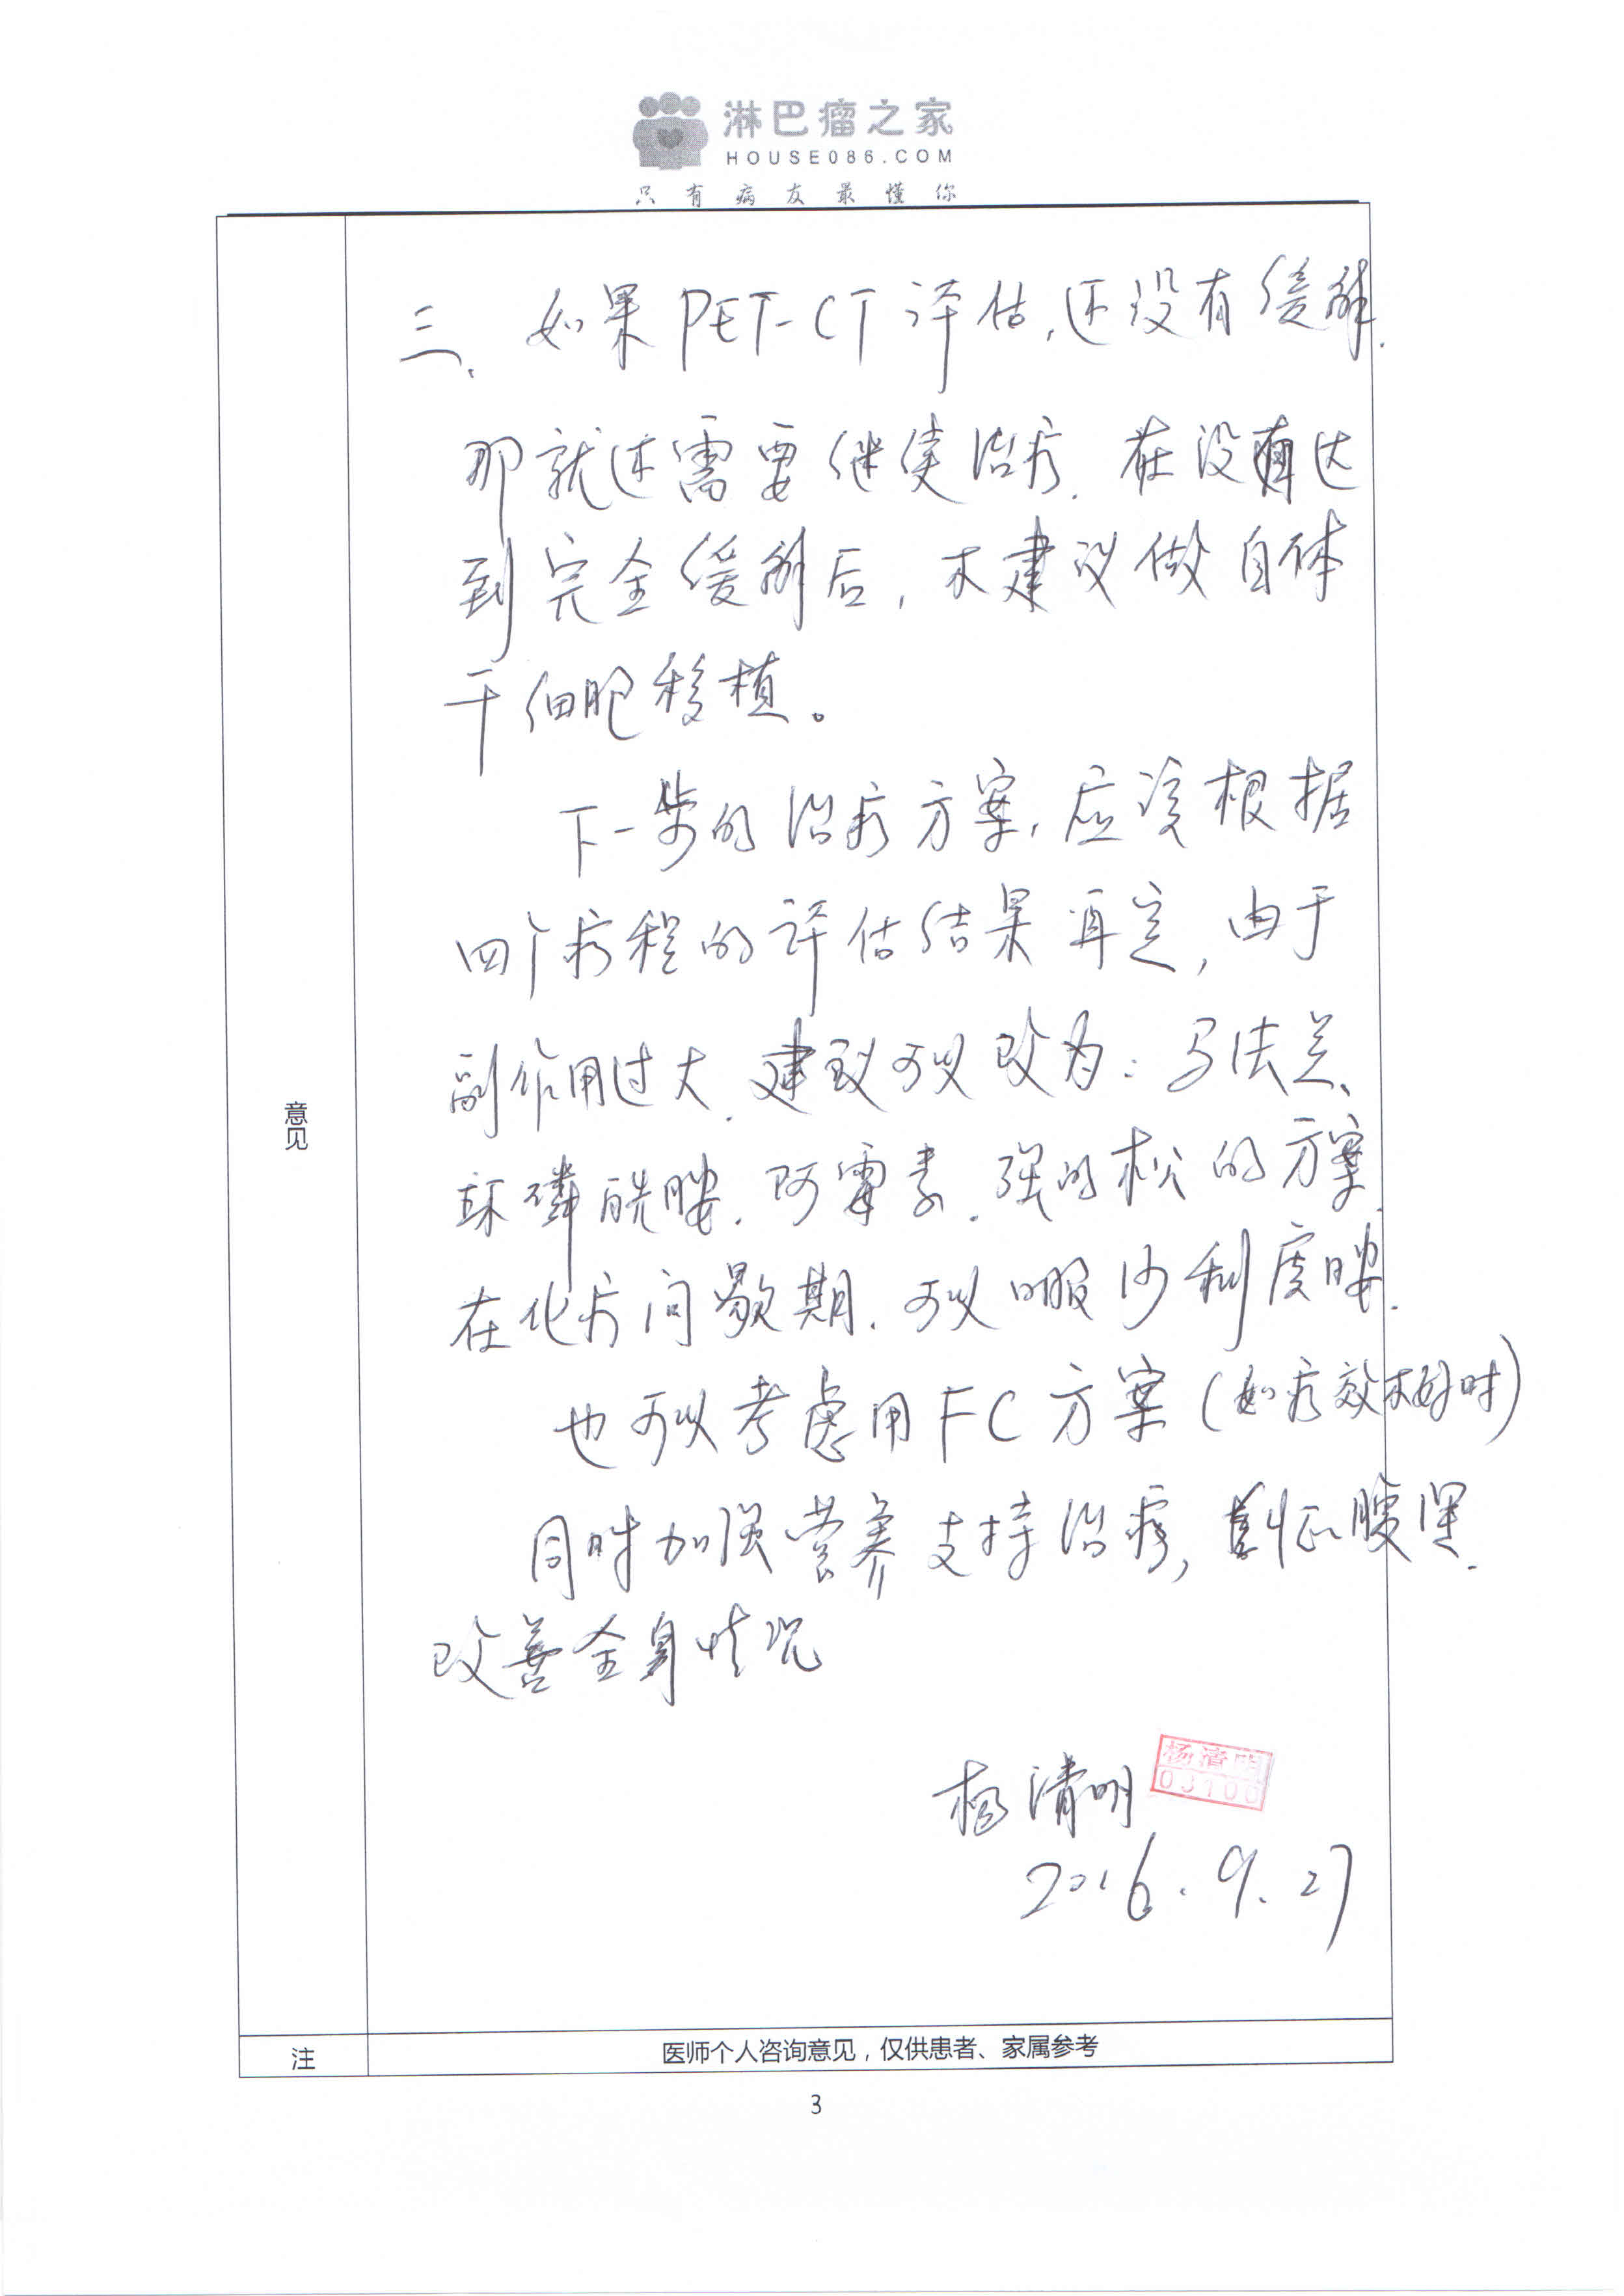 淋巴瘤之家
HOUSE086.COM
只有病友最懂你
三、如果PET-CT评估,还没有缓解.
那就还需要继续治疗.在没有达
到完全缓解后,不建议做自体
干细胞移植。
下一步的治疗方案,应该根据
四个疗程的评估结果再定,由于
副作用过大.建议可以改为:马法兰、
环磷酰胺.阿霉素.强的松的方案.
在化疗间歇期.可以口服沙利度胺.
也可以考虑用FC方案(如疗效不好时)
同时加强营养支持治疗,纠正腹
改善全身情况
杨清明
杨清明
03100
2016.9.27
意见
注
医师个人咨询意见,仅供患者、家属参考
3